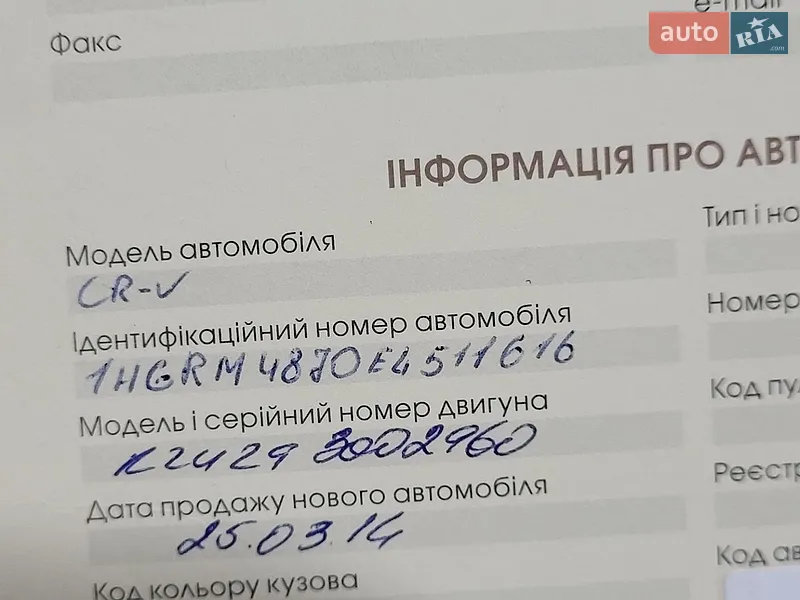 e-mail
auto RIA .com
Факс
ІНФОРМАЦІЯ ПРО АВТ
Модель автомобіля
CR-V
Тип і но
Ідентифікаційний номер автомобіля
1HGRM4870E4511616
Номер
Модель і серійний номер двигуна
K24Z9 3002960
Код пу
Дата продажу нового автомобіля
25.03.14
Реєстр
Код кольору кузова
Код ав